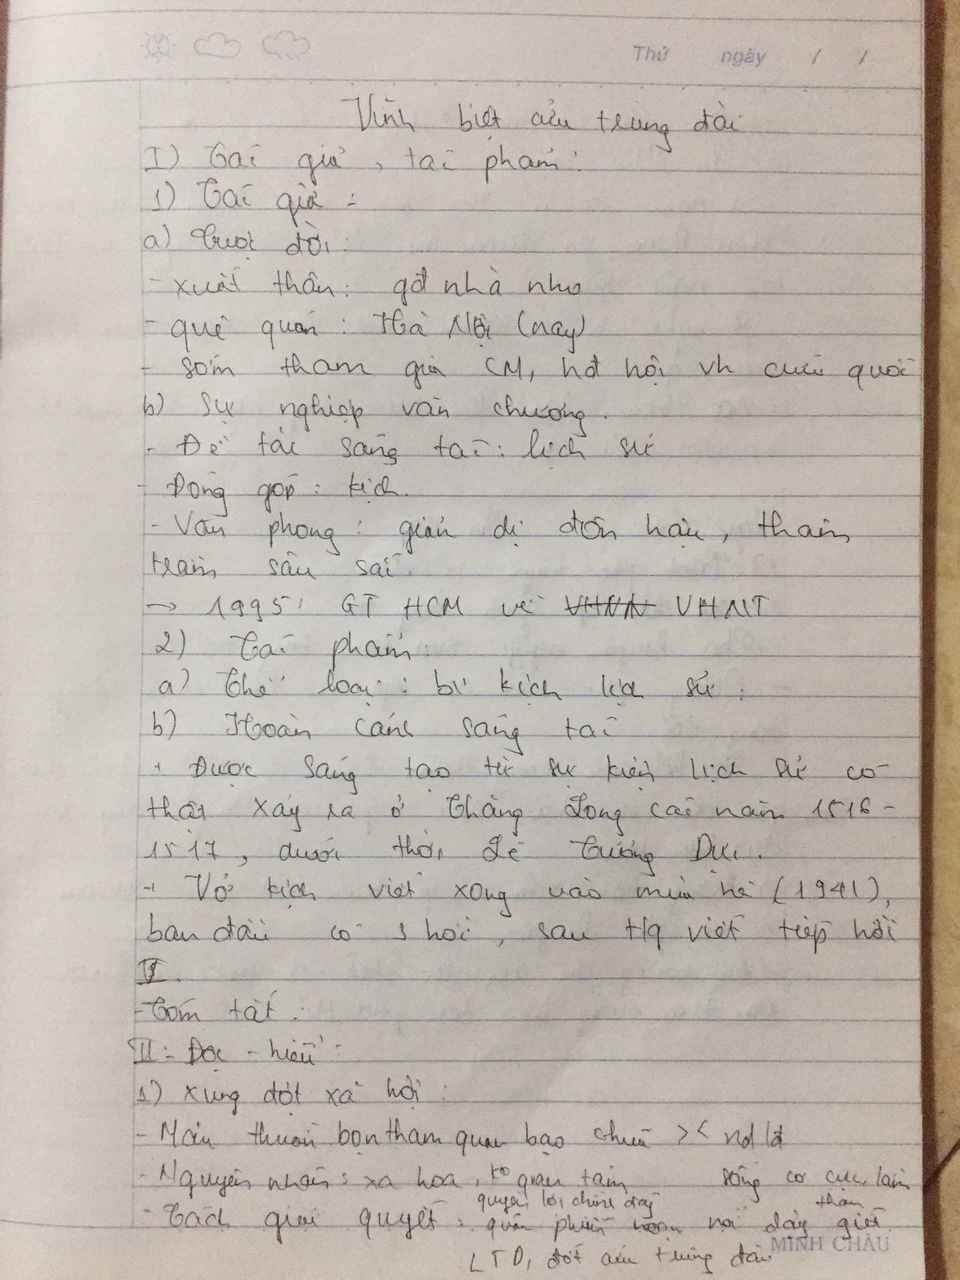 Thứ ngày / /
Vĩnh biệt cửu trùng đài
I) Tác giả, tác phẩm:
1) Tác giả:
a) Cuộc đời:
- xuất thân: gđ nhà nho
- quê quán: Hà Nội (nay)
- sớm tham gia CM, hđ hội vh cứu quốc
b) Sự nghiệp văn chương.
- Đề tài sáng tác: lịch sử
- Đóng góp: kịch.
- Văn phong: giản dị đôn hậu, thâm
trầm sâu sắc
→ 1995: GT HCM về VHNN VHNT
2) Tác phẩm:
a) Thể loại: bi kịch lịch sử.
b) Hoàn cảnh sáng tác
+ Được sáng tạo từ sự kiện lịch sử có
thật xảy ra ở Thăng Long các năm 1516-
1517, dưới thời Lê Tương Dực.
+ Vở kịch viết xong vào mùa hè (1941),
ban đầu có 3 hồi, sau viết tiếp hồi
V.
- Tóm tắt:
II: Đọc - hiểu:
1) Xung đột xã hội:
- Mâu thuẫn bọn tham quan bạo chúa >< nd lđ
- Nguyên nhân: xa hoa, ko quan tâm sống cơ cực, lầm
quyền lợi chính đáng than
- Cách giải quyết: quân phiến loạn nổi dậy giết
LTD, đốt cửu trùng đài
MINH CHÂU